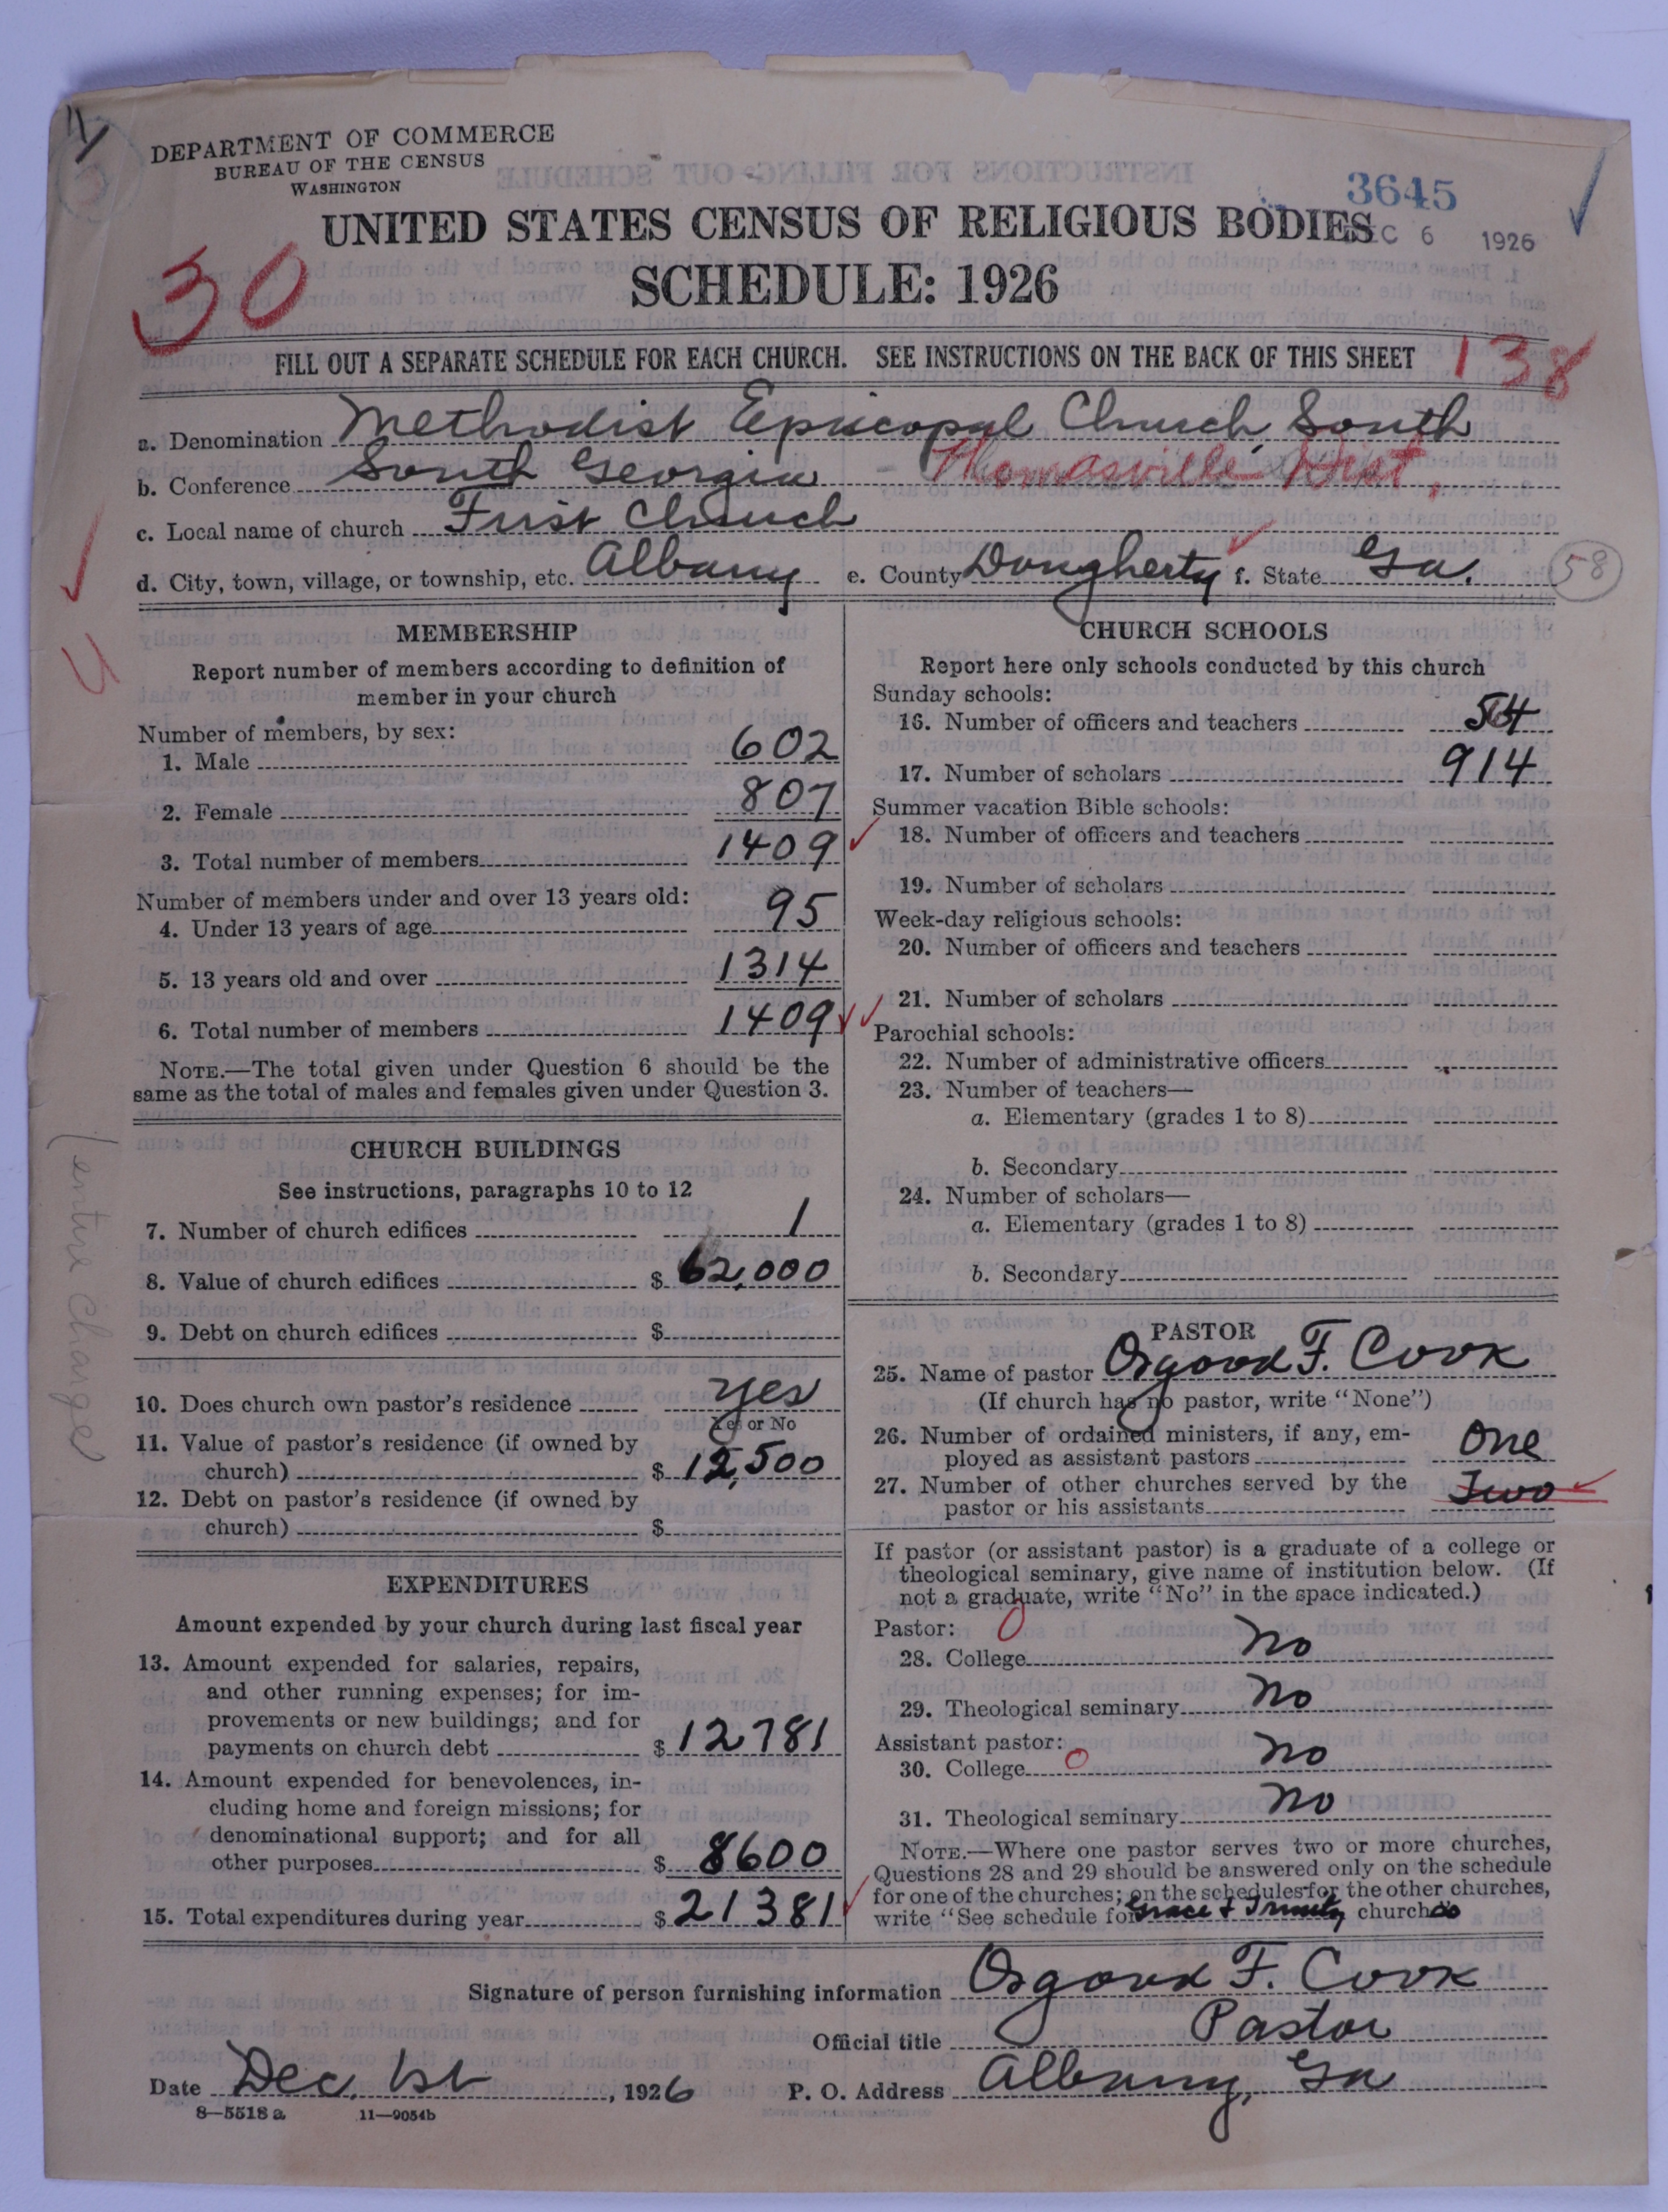 DEPARTMENT OF COMMERCE
BUREAU OF THE CENSUS
WASHINGTON
3645
UNITED STATES CENSUS OF RELIGIOUS BODIES
C 6 1926
30
SCHEDULE: 1926
FILL OUT A SEPARATE SCHEDULE FOR EACH CHURCH. SEE INSTRUCTIONS ON THE BACK OF THIS SHEET
138
a. Denomination Methodist Episcopal Church, South
b. Conference South Georgia - Thomasville Dist.
c. Local name of church First Church
d. City, town, village, or township, etc. Albany e. County Dougherty f. State Ga.
58
MEMBERSHIP
Report number of members according to definition of
member in your church
Number of members, by sex:
1. Male 602
2. Female 807
3. Total number of members 1409
Number of members under and over 13 years old:
4. Under 13 years of age 95
5. 13 years old and over 1314
6. Total number of members 1409
NOTE.—The total given under Question 6 should be the
same as the total of males and females given under Question 3.
CHURCH BUILDINGS
See instructions, paragraphs 10 to 12
7. Number of church edifices 1
8. Value of church edifices $ 62,000
9. Debt on church edifices $
10. Does church own pastor's residence yes
Yes or No
11. Value of pastor's residence (if owned by
church) $ 12,500
12. Debt on pastor's residence (if owned by
church) $
(entire charge)
EXPENDITURES
Amount expended by your church during last fiscal year
13. Amount expended for salaries, repairs,
and other running expenses; for im-
provements or new buildings; and for
payments on church debt $ 12781
14. Amount expended for benevolences, in-
cluding home and foreign missions; for
denominational support; and for all
other purposes $ 8600
15. Total expenditures during year $ 21381
CHURCH SCHOOLS
Report here only schools conducted by this church
Sunday schools:
16. Number of officers and teachers 54
17. Number of scholars 914
Summer vacation Bible schools:
18. Number of officers and teachers
19. Number of scholars
Week-day religious schools:
20. Number of officers and teachers
21. Number of scholars
Parochial schools:
22. Number of administrative officers
23. Number of teachers—
a. Elementary (grades 1 to 8)
b. Secondary
24. Number of scholars—
a. Elementary (grades 1 to 8)
b. Secondary
PASTOR
25. Name of pastor Osgood F. Cook
(If church has no pastor, write "None")
26. Number of ordained ministers, if any, em-
ployed as assistant pastors One
27. Number of other churches served by the
pastor or his assistants Two
If pastor (or assistant pastor) is a graduate of a college or
theological seminary, give name of institution below. (If
not a graduate, write "No" in the space indicated.)
Pastor:
28. College No
29. Theological seminary No
Assistant pastor:
30. College No
31. Theological seminary No
NOTE.—Where one pastor serves two or more churches,
Questions 28 and 29 should be answered only on the schedule
for one of the churches; on the schedules for the other churches,
write "See schedule for Grace & Trinity church
Signature of person furnishing information Osgood F. Cook
Official title Pastor
Date Dec. 1st, 1926 P. O. Address Albany, Ga
8—5518 a 11—9054b